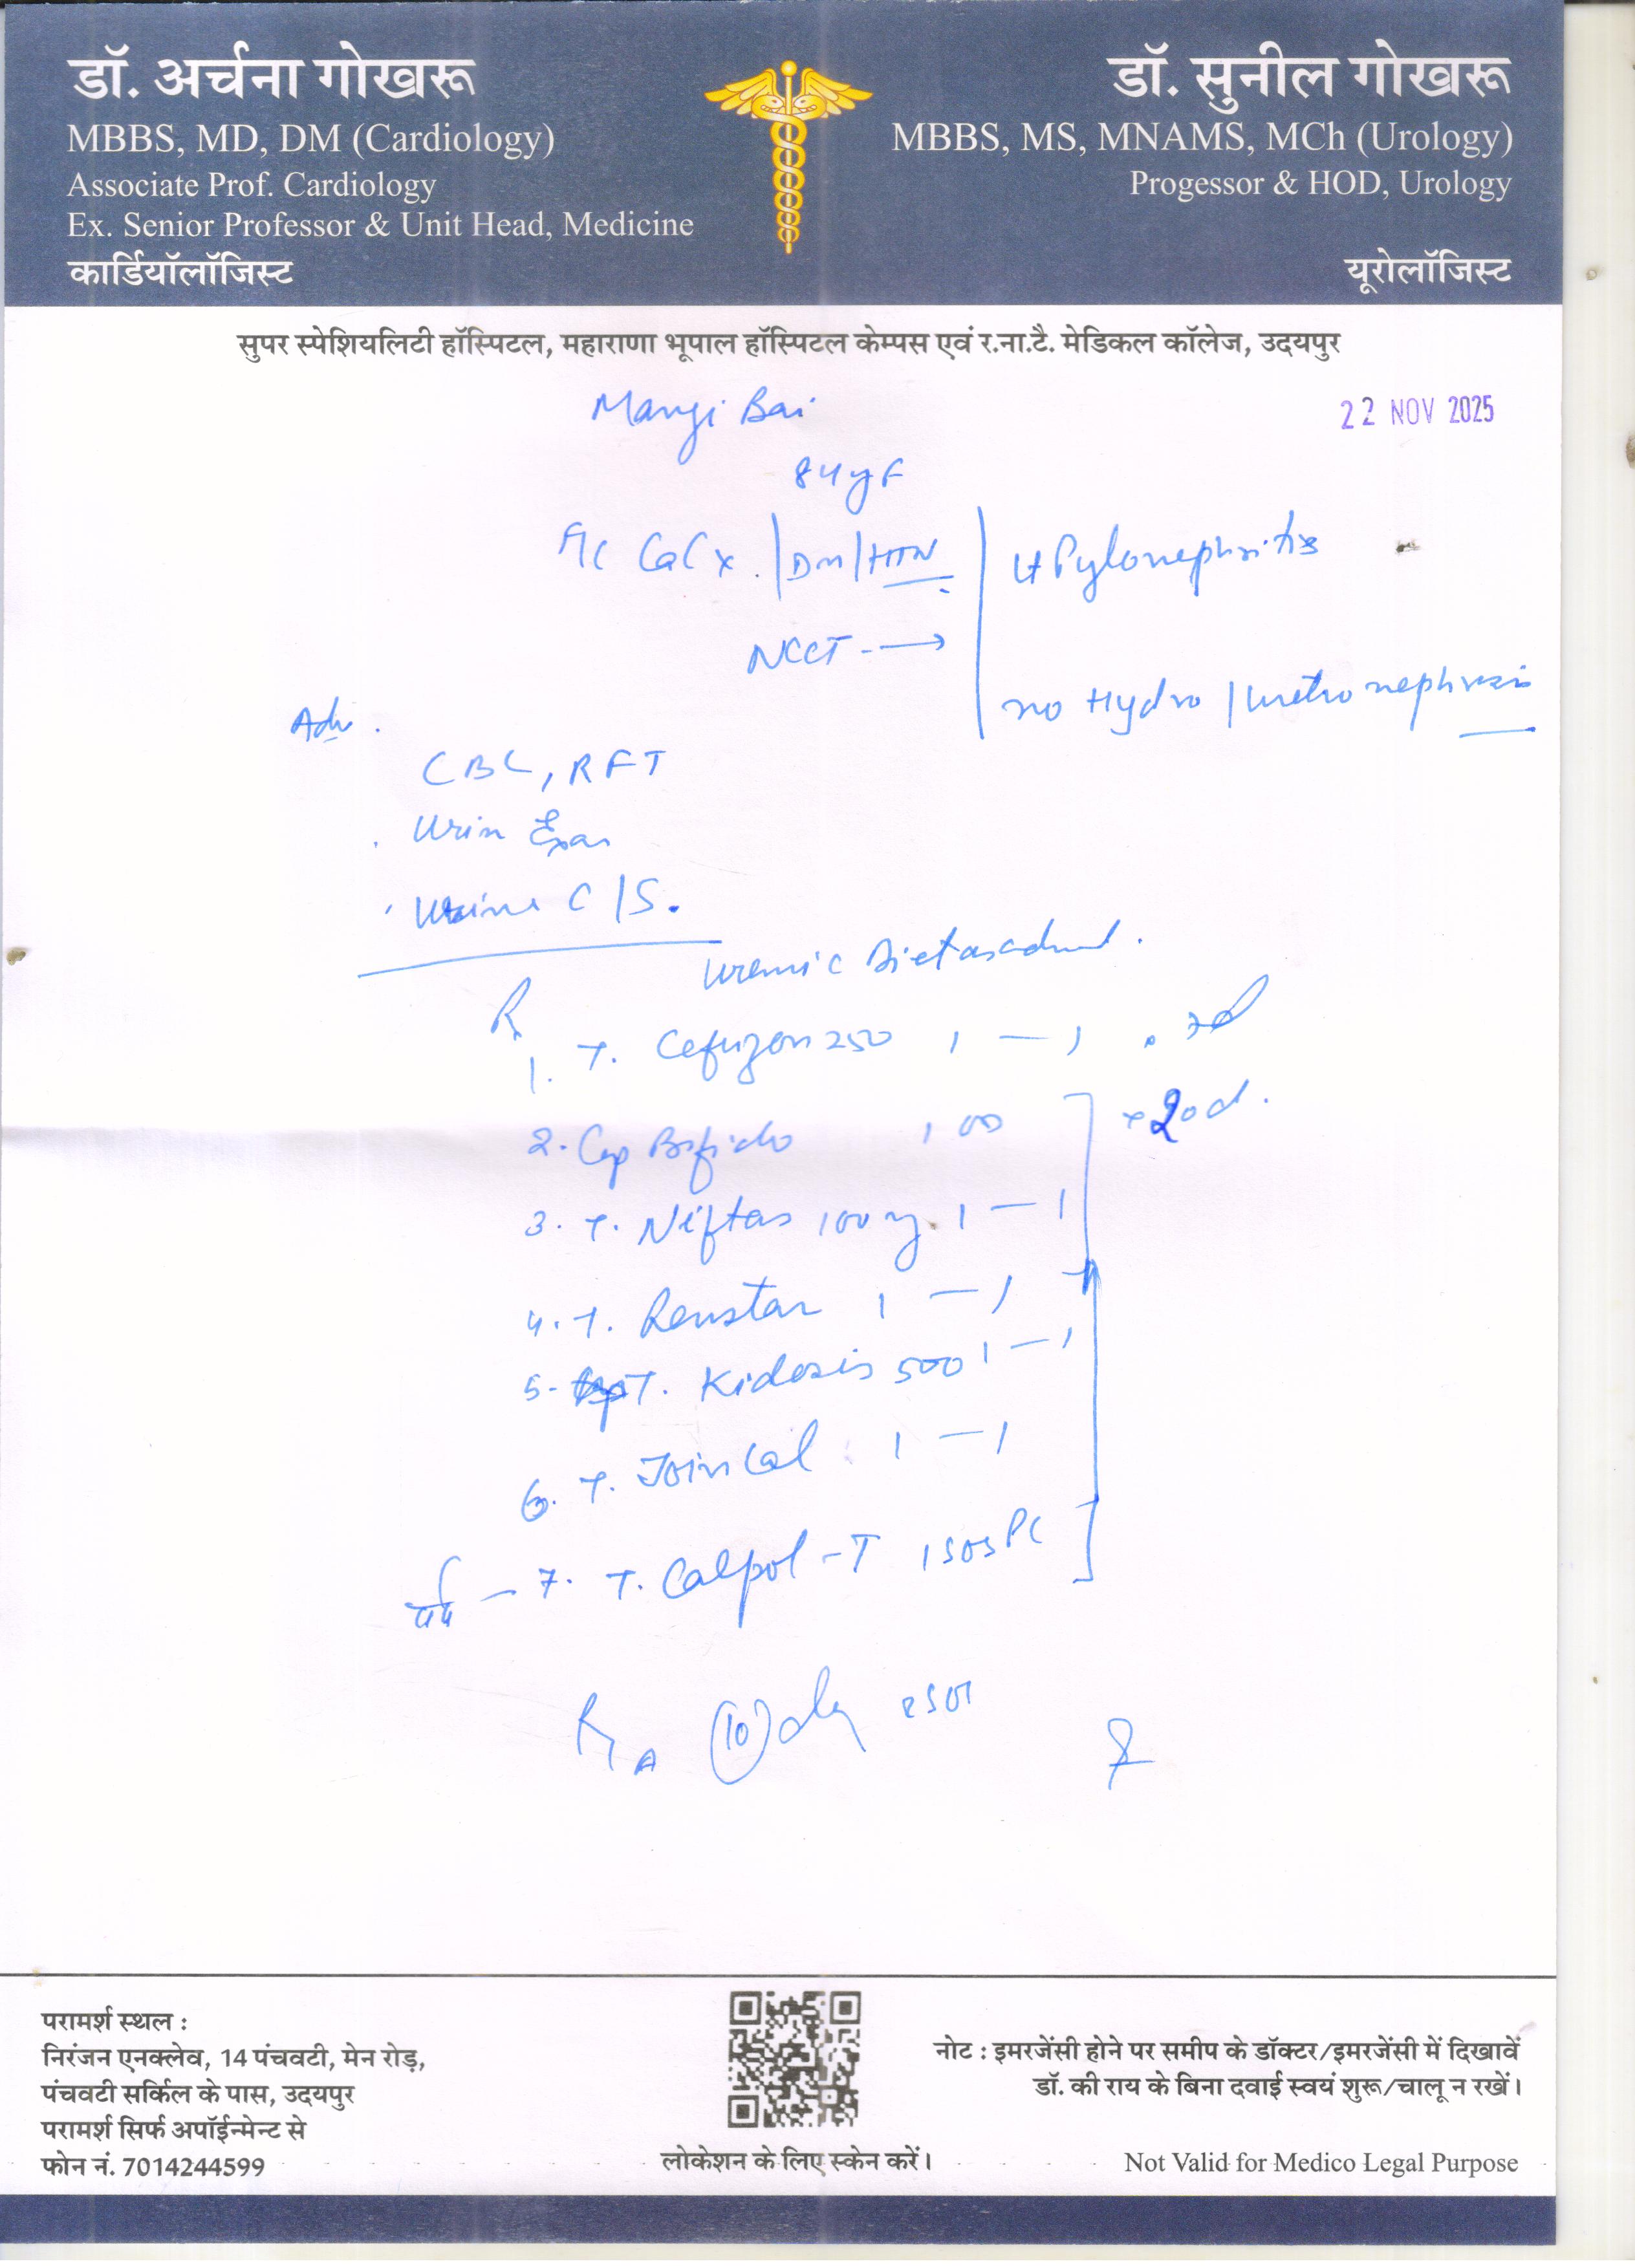 डॉ. अर्चना गोखरू
MBBS, MD, DM (Cardiology)
Associate Prof. Cardiology
Ex. Senior Professor & Unit Head, Medicine
कार्डियॉलॉजिस्ट
डॉ. सुनील गोखरू
MBBS, MS, MNAMS, MCh (Urology)
Progessor & HOD, Urology
यूरोलॉजिस्ट
सुपर स्पेशियलिटी हॉस्पिटल, महाराणा भूपाल हॉस्पिटल केम्पस एवं र.ना.टै. मेडिकल कॉलेज, उदयपुर
Mangi Bai
22 NOV 2025
84yF
CaCx. | DM | HTN | Lt Pylonephritis
NCCT - →
no Hydro | uretro nephrosis
Adv.
CBC, RFT
Urin Exam
Urine C/S.
Uremic Diet
Rx
1. T. 250 1 — 1 . 7d
2. Cap Bifido 1 OD × 20d.
3. T. Niftas 100mg 1 — 1
4. T. Renstar 1 — 1
5. T. 500 1 — 1
6. T. Join Cal 1 — 1
7. T. Calpol -T 1 SOS PC
(10) day
परामर्श स्थल :
निरंजन एनक्लेव, 14 पंचवटी, मेन रोड़,
पंचवटी सर्किल के पास, उदयपुर
परामर्श सिर्फ अपॉईन्मेन्ट से
फोन नं. 7014244599
लोकेशन के लिए स्केन करें।
नोट : इमरजेंसी होने पर समीप के डॉक्टर/इमरजेंसी में दिखावें
डॉ. की राय के बिना दवाई स्वयं शुरू/चालू न रखें।
Not Valid for Medico Legal Purpose